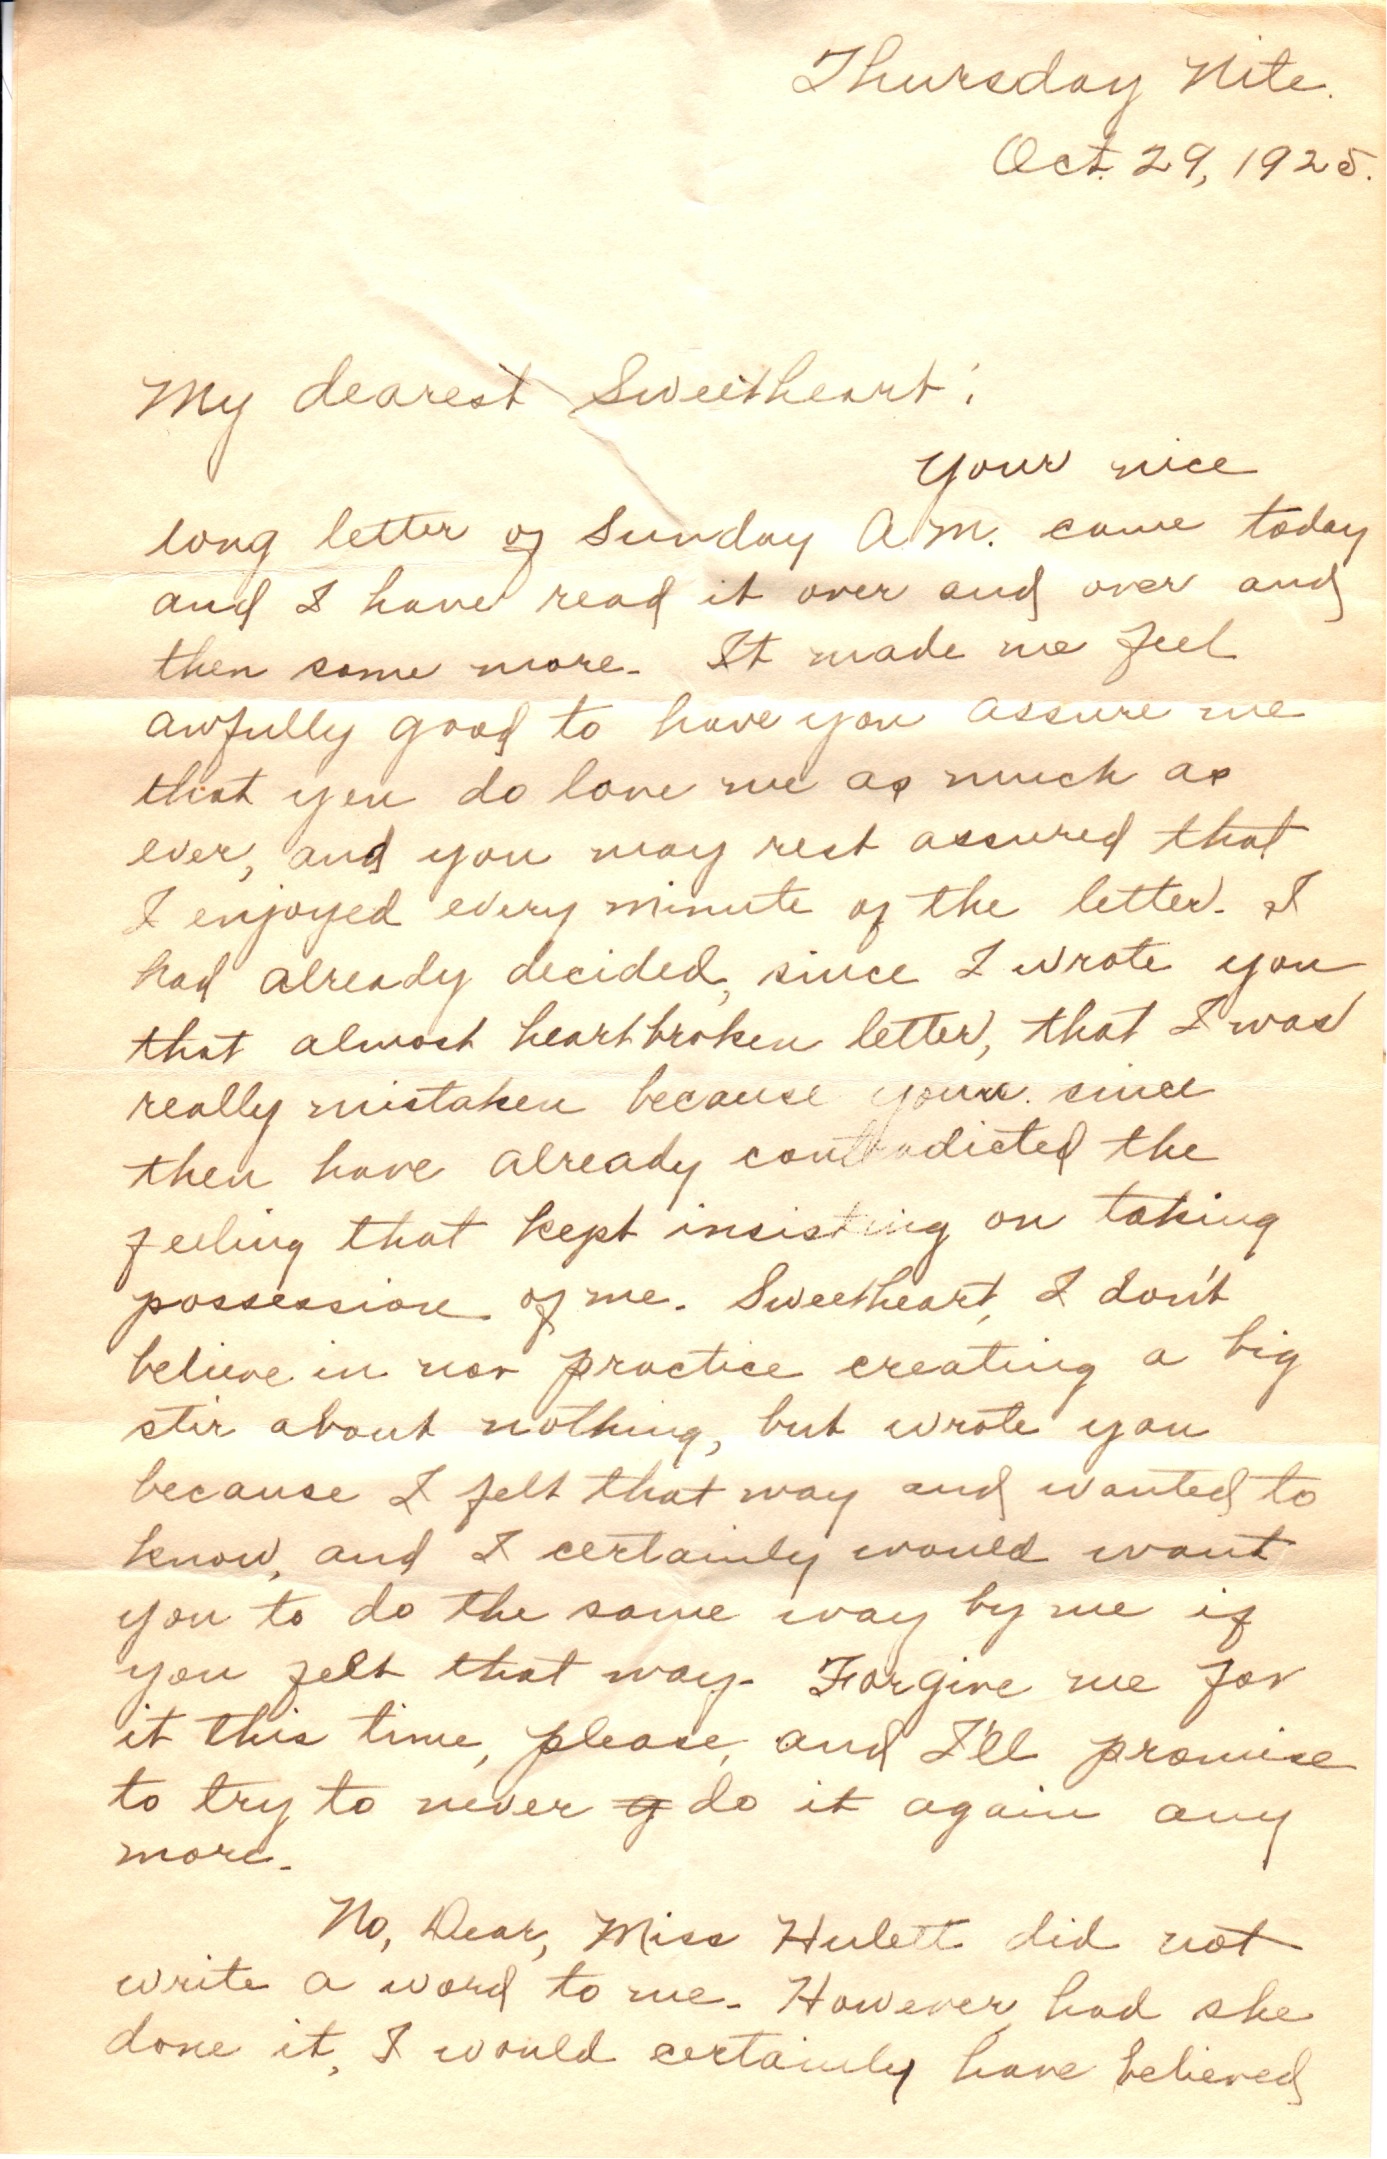 Thursday Nite.
Oct. 29, 1925.
My dearest Sweetheart:
Your nice
long letter of Sunday A.M. came today
and I have read it over and over and
then some more. It made me feel
awfully good to have you assure me
that you do love me as much as
ever, and you may rest assured that
I enjoyed every minute of the letter. I
had already decided, since I wrote you
that almost heartbroken letter, that I was
really mistaken because yours since
then have already contradicted the
feeling that kept insisting on taking
possession of me. Sweetheart, I don't
believe in nor practice creating a big
stir about nothing, but wrote you
because I felt that way and wanted to
know, and I certainly would want
you to do the same way by me if
you felt that way. Forgive me for
it this time, please, and I'll promise
to try to never g do it again any
more.
No, Dear, Miss Hulett did not
write a word to me. However, had she
done it, I would certainly have believed